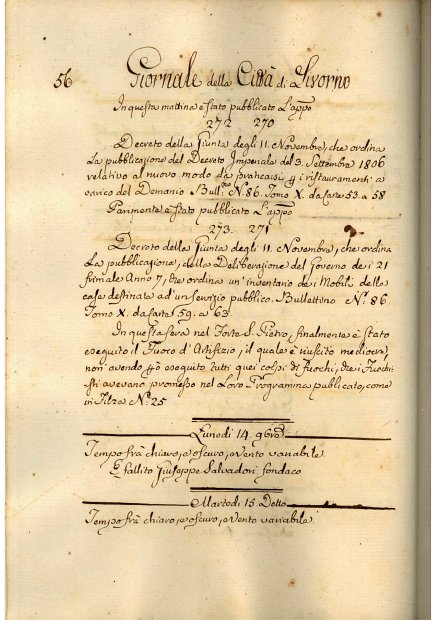 56 Giornale della Città di Livorno
In questa mattina è stato pubblicato L'appo
272 270
Decreto della Giunta degli 11. Novembre, che ordina
La pubblicazione del Decreto Imperiale del 3. Settembre 1806
relativo al nuovo modo da praticarsi
i ristauramenti a
carico del Demanio Bull.no N.o 86. Tomo X. da Carte 53 a 58
Parimente è stato pubblicato L'appo
273. 271
Decreto della Giunta degli 11. Novembre, che ordina
La pubblicazione, della Deliberazione del Governo de i 21
frimale Anno 7, che ordina un'inventario de i Mobili delle
case destinate ad'un servizio pubblico. Bullettino N.o 86
Tomo X. da Carte 59. a 63
In questa sera nel Forte S. Pietro, finalmente è stato
eseguito il Fuoco d'Artifizio, il quale è riuscito mediocre,
non avendo eseguito tutti quei colpi di fuochi, che i Fuochi-
sti avevano promesso nel Loro Programma publicato, come
in Filza N.o 25
Lunedi 14. 9bre
Tempo frà chiaro, e oscuro, e vento variabile.
È fallito Giuseppe Salvadori fondaco
Martedi 15 Detto
Tempo frà chiaro, e oscuro, e vento variabile.